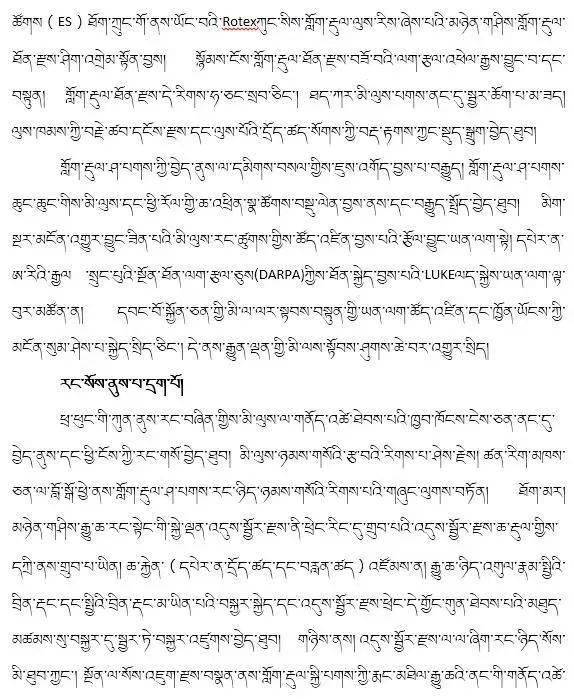 ཚོགས ( ES ) ཐོག་ཀྲུང་གོ་ནས་ཡོང་བའི་Rotexཀུང་སིས་གློག་རྡུལ་ལུས་རིས་ཞེས་པའི་མཉེན་གཤིས་གློག་རྡུལ་
ཐོན་རྫས་ཤིག་འགྲེམ་སྟོན་བྱས། སྙོམས་ངོས་གློག་རྡུལ་ཐོན་རྫས་བཟོ་བའི་ལག་རྩལ་འཕེལ་རྒྱས་བྱུང་བ་དང་
བསྟུན། གློག་རྡུལ་ཐོན་རྫས་དེ་རིགས་ཧ་ཅང་སྲབ་ཅིང་། ཐད་ཀར་མི་ལུས་པགས་ནང་དུ་སྦྱར་ཆོག་པ་མ་ཟད།
ལུས་ཁམས་ཀྱི་བརྗེ་ཚབ་དངོས་རྫས་དང་ལུས་པོའི་དྲོད་ཚད་སོགས་ཀྱི་བརྡ་རྟགས་ཀྱང་སྡུད་སྒྲུག་བྱེད་ཐུབ།
གློག་རྡུལ་ཤ་པགས་ཀྱི་བྱེད་ནུས་ལ་དམིགས་བསལ་གྱིས་ཇུས་འགོད་བྱས་པ་བརྒྱུད། གློག་རྡུལ་ཤ་པགས་
ཆུང་ཆུང་གིས་མི་ལུས་དང་ཕྱི་རོལ་གྱི་ཆ་འཕྲིན་སྣ་ཚོགས་བསྡུ་ལེན་བྱས་ནས་དང་བརྒྱུད་སྤྲོད་བྱེད་ཐུབ། མིག་
སྔར་མངོན་འགྱུར་བྱུང་ཟིན་པའི་མི་ལུས་རང་ཚུགས་གྱིས་ཚོད་འཛིན་བྱས་པའི་རྩོལ་བྱུང་ཡན་ལག་སྟེ། དཔེར་ན་
ཨ་རིའི་རྒྱལ་ སྲུང་པུའི་སྔོན་ཐོན་ལག་རྩལ་ཅུས(DARPA)ཀྱིས་ཐོན་སྐྱེད་བྱས་པའི་LUKEལད་སྐྱེས་ཡན་ལག་ལྟ་
བུར་མཚོན་ན། དབང་པོ་སྐྱོན་ཅན་གྱི་མི་ལ་ལར་སྟབས་བསྟུན་གྱི་ཡན་ལག་ཚོད་འཛིན་དང་ཁྱོན་ཡོངས་ཀྱི་
མངོན་སུམ་ཤེས་པ་སྐྱེད་སྲིད་ཅིང་། དེ་ནས་རྒྱུན་ལྡན་གྱི་མི་ལས་སྟོབས་ཤུགས་ཆེ་བར་འགྱུར་སྲིད།
རང་སོས་ནུས་པ་དྲག་པོ།
ཕྲ་ཕུང་གི་ཀུན་ནུས་རང་བཞིན་གྱིས་མི་ལུས་ལ་གནོད་འཚེ་ཐེབས་པའི་ཁྱབ་ཁོངས་ངེས་ཅན་ནང་དུ་
བྱེད་ནུས་དང་ཕྱི་ངོས་ཀྱི་རང་གསོ་བྱེད་ཐུབ། མི་ལུས་ཉམས་གསོའི་རྩ་བའི་རིགས་པ་ཤེས་རྗེས། ཚན་རིག་མཁས་
ཅན་ལ་བློ་སྒོ་ཕྱེ་ནས་གློག་རྡུལ་ཤ་པགས་རང་ཉིད་ཉམས་གསོའི་རིགས་པའི་གཞུང་ལུགས་བཏོན། ཐོག་མར།
མཉེན་གཤིས་རྒྱུ་ཆ་རང་སྟེང་གི་སྐྱེ་ལྡན་འདུས་སྦྱོར་རྫས་ནི་ཕྲེང་རིང་དུ་གྲུབ་པའི་འདུས་སྦྱོར་རྫས་ཆ་རྡུལ་གྱིས་
དཀྲི་ནས་གྲུབ་པ་ཡིན། ཆ་རྐྱེན་ ( དཔེར་ན་དྲོད་ཚད་དང་བརླན་ཚད ) འཛོམས་ན། རྒྱུ་ཆ་ཉིད་འགུལ་རྣམ་སྤྱིའི་
བྲིན་རྡང་དང་སྤྱིའི་བྲིན་རྡང་མ་ཡིན་པའི་བསྐྱར་སྐྱེད་དང་འདུས་སྦྱོར་རྫས་ཕྲེང་དེ་གྱོང་གུན་ཐེབས་པའི་མཐུད་
མཚམས་སུ་བསྐྱར་དུ་སྦྱར་ཏེ་བསྐྱར་འཛུགས་བྱེད་ཐུབ། གཉིས་ནས། འདུས་སྦྱོར་རྫས་ལ་ལ་ཞིག་རང་ཉིད་སོས་
མི་ཐུབ་ཀྱང་། སྔོན་ལ་སོས་འཇུག་རྫས་བསྣན་ནས་གློག་རྡུལ་སྐྱི་པགས་ཀྱི་རྨང་མཐིལ་རྒྱུ་ཆའི་ནང་གི་གནོད་འཚེ་